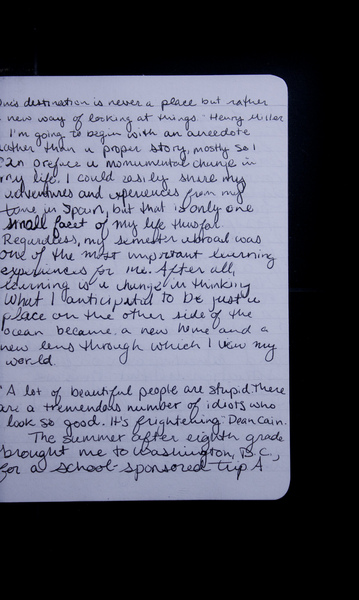 One's destination is never a place but rather
a new way of looking at things. Henry Miller
I'm going to begin with an anecdote
rather than a proper story, mostly so I
can preface a monumental change in
my life. I could easily share my
adventures and experiences from my
time in Spain, but that is only one
small facet of my life thusfar.
Regardless, my semester abroad was
one of the most important learning
experiences for me. After all,
learning is a change in thinking
What I anticipated to be just a
place on the other side of the
ocean became a new home and a
new lens through which I view my
world.
"A lot of beautiful people are stupid. There
are a tremendous number of idiots who
look so good. It's frightening." Dean Cain.
The summer after eighth grade
brought me to Washington, D.C.,
for a school-sponsored trip. A